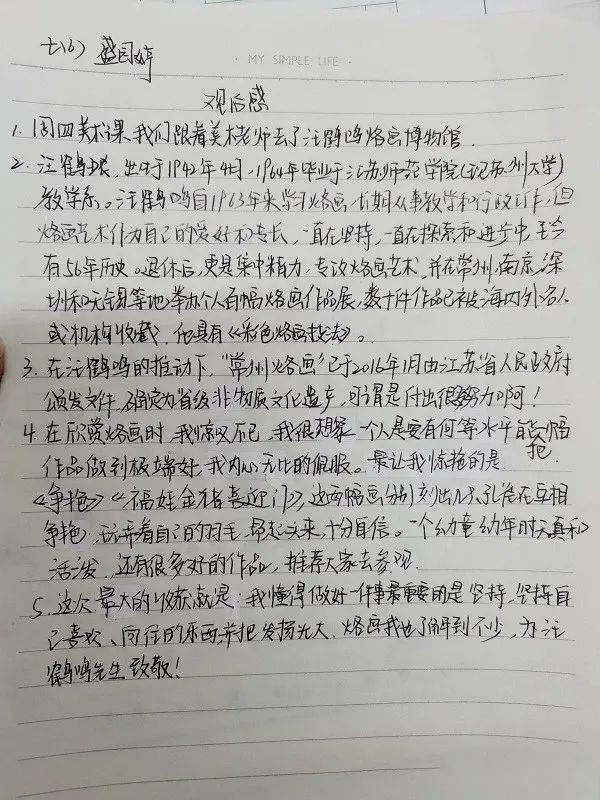 七(6) 盛园婷
· MY SIMPLE LIFE ·
观后感
1. 周四美术课,我们跟着美术老师去了汪鹤鸣烙画博物馆.
2. 汪鹤鸣,出生于1942年4月,1964年毕业于江苏师范学院(现苏州大学)
数学系。汪鹤鸣自1963年来学习烙画,长期从事教学和行政工作,但
烙画艺术作为自己的爱好和专长,一直在坚持,一直在探索和进步中,至今
有56年历史。退休后,更是集中精力,专攻烙画艺术,并在常州,南京,深
圳和无锡等地举办个人百幅烙画作品展,数十件作品已被海内外名人
或机构收藏,他具有《彩色烙画技法》。
3. 在汪鹤鸣的推动下,“常州烙画”已于2016年1月由江苏省人民政府
颁发文件,确定为省级非物质文化遗产,可谓是付出很多努力啊!
4. 在欣赏烙画时,我惊叹不已,我很想象一个人是要有何等水平能把一幅
作品做到极端好,我内心无比的佩服。最让我惊艳的是
《争艳》《福娃金猪喜迎门》,这两幅画分别刻出几只孔雀在互相
争艳,玩弄着自己的羽毛,昂起头来,十分自信。一个幼童幼年时天真和
活泼,还有很多好的作品,推荐大家去参观.
5. 这次最大的收获就是:我懂得做好一件事最重要的是坚持,坚持自
己喜欢、向往的东西,并把发扬光大,烙画我也了解到不少,为汪
鹤鸣先生致敬!